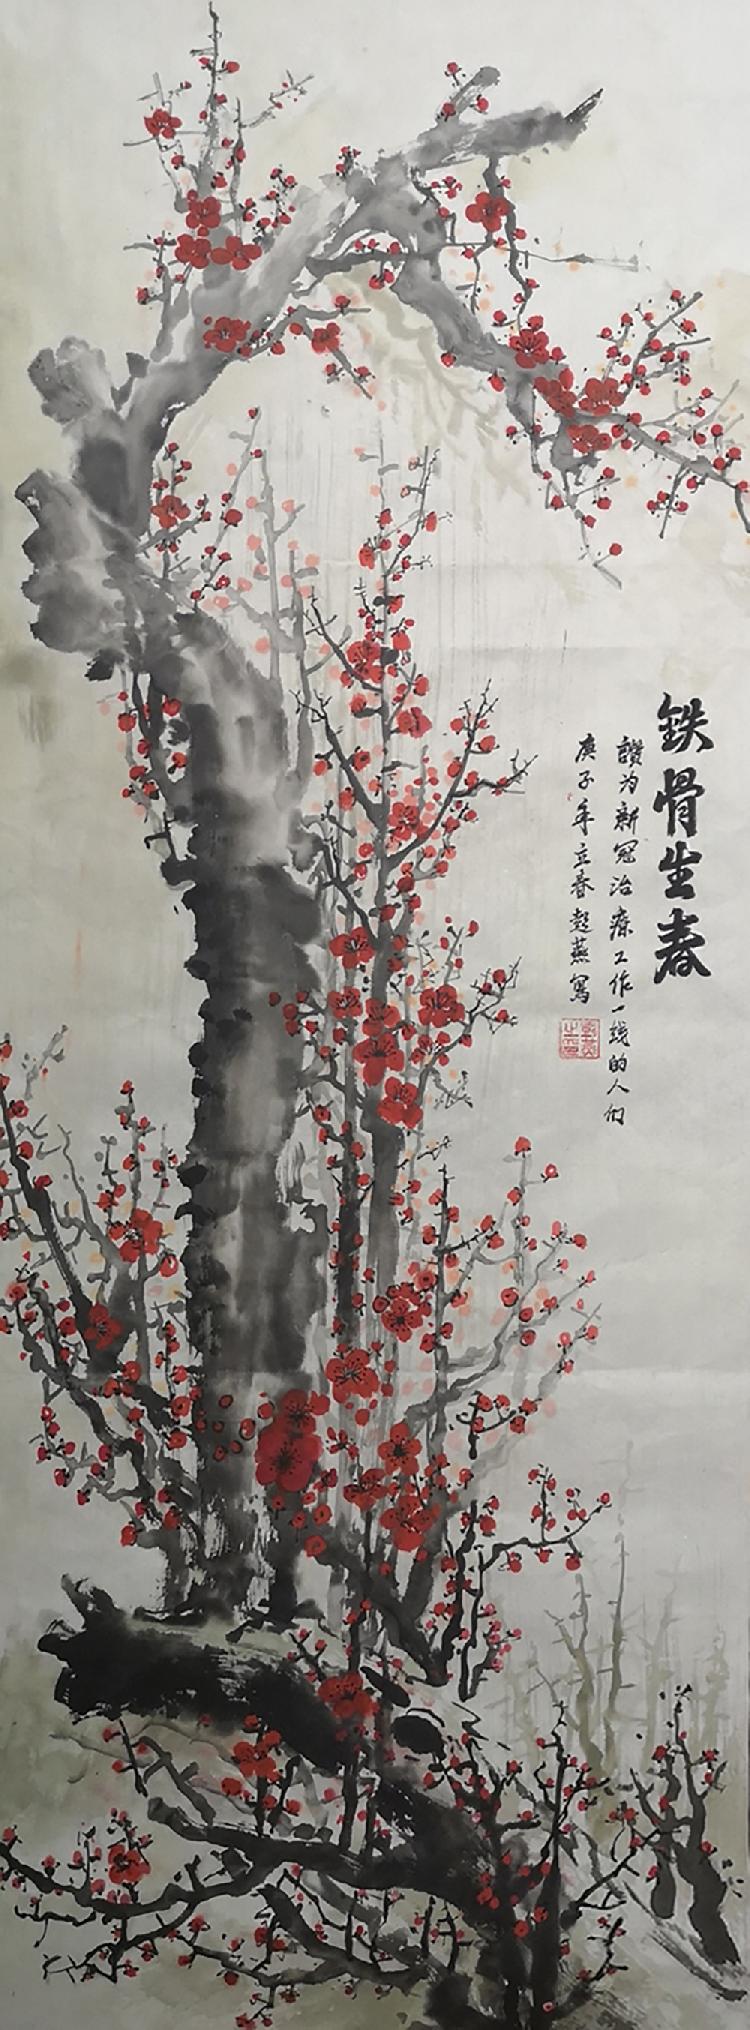 铁骨生春
讚为新冠治疗工作一线的人们
庚子年立春彭燕写